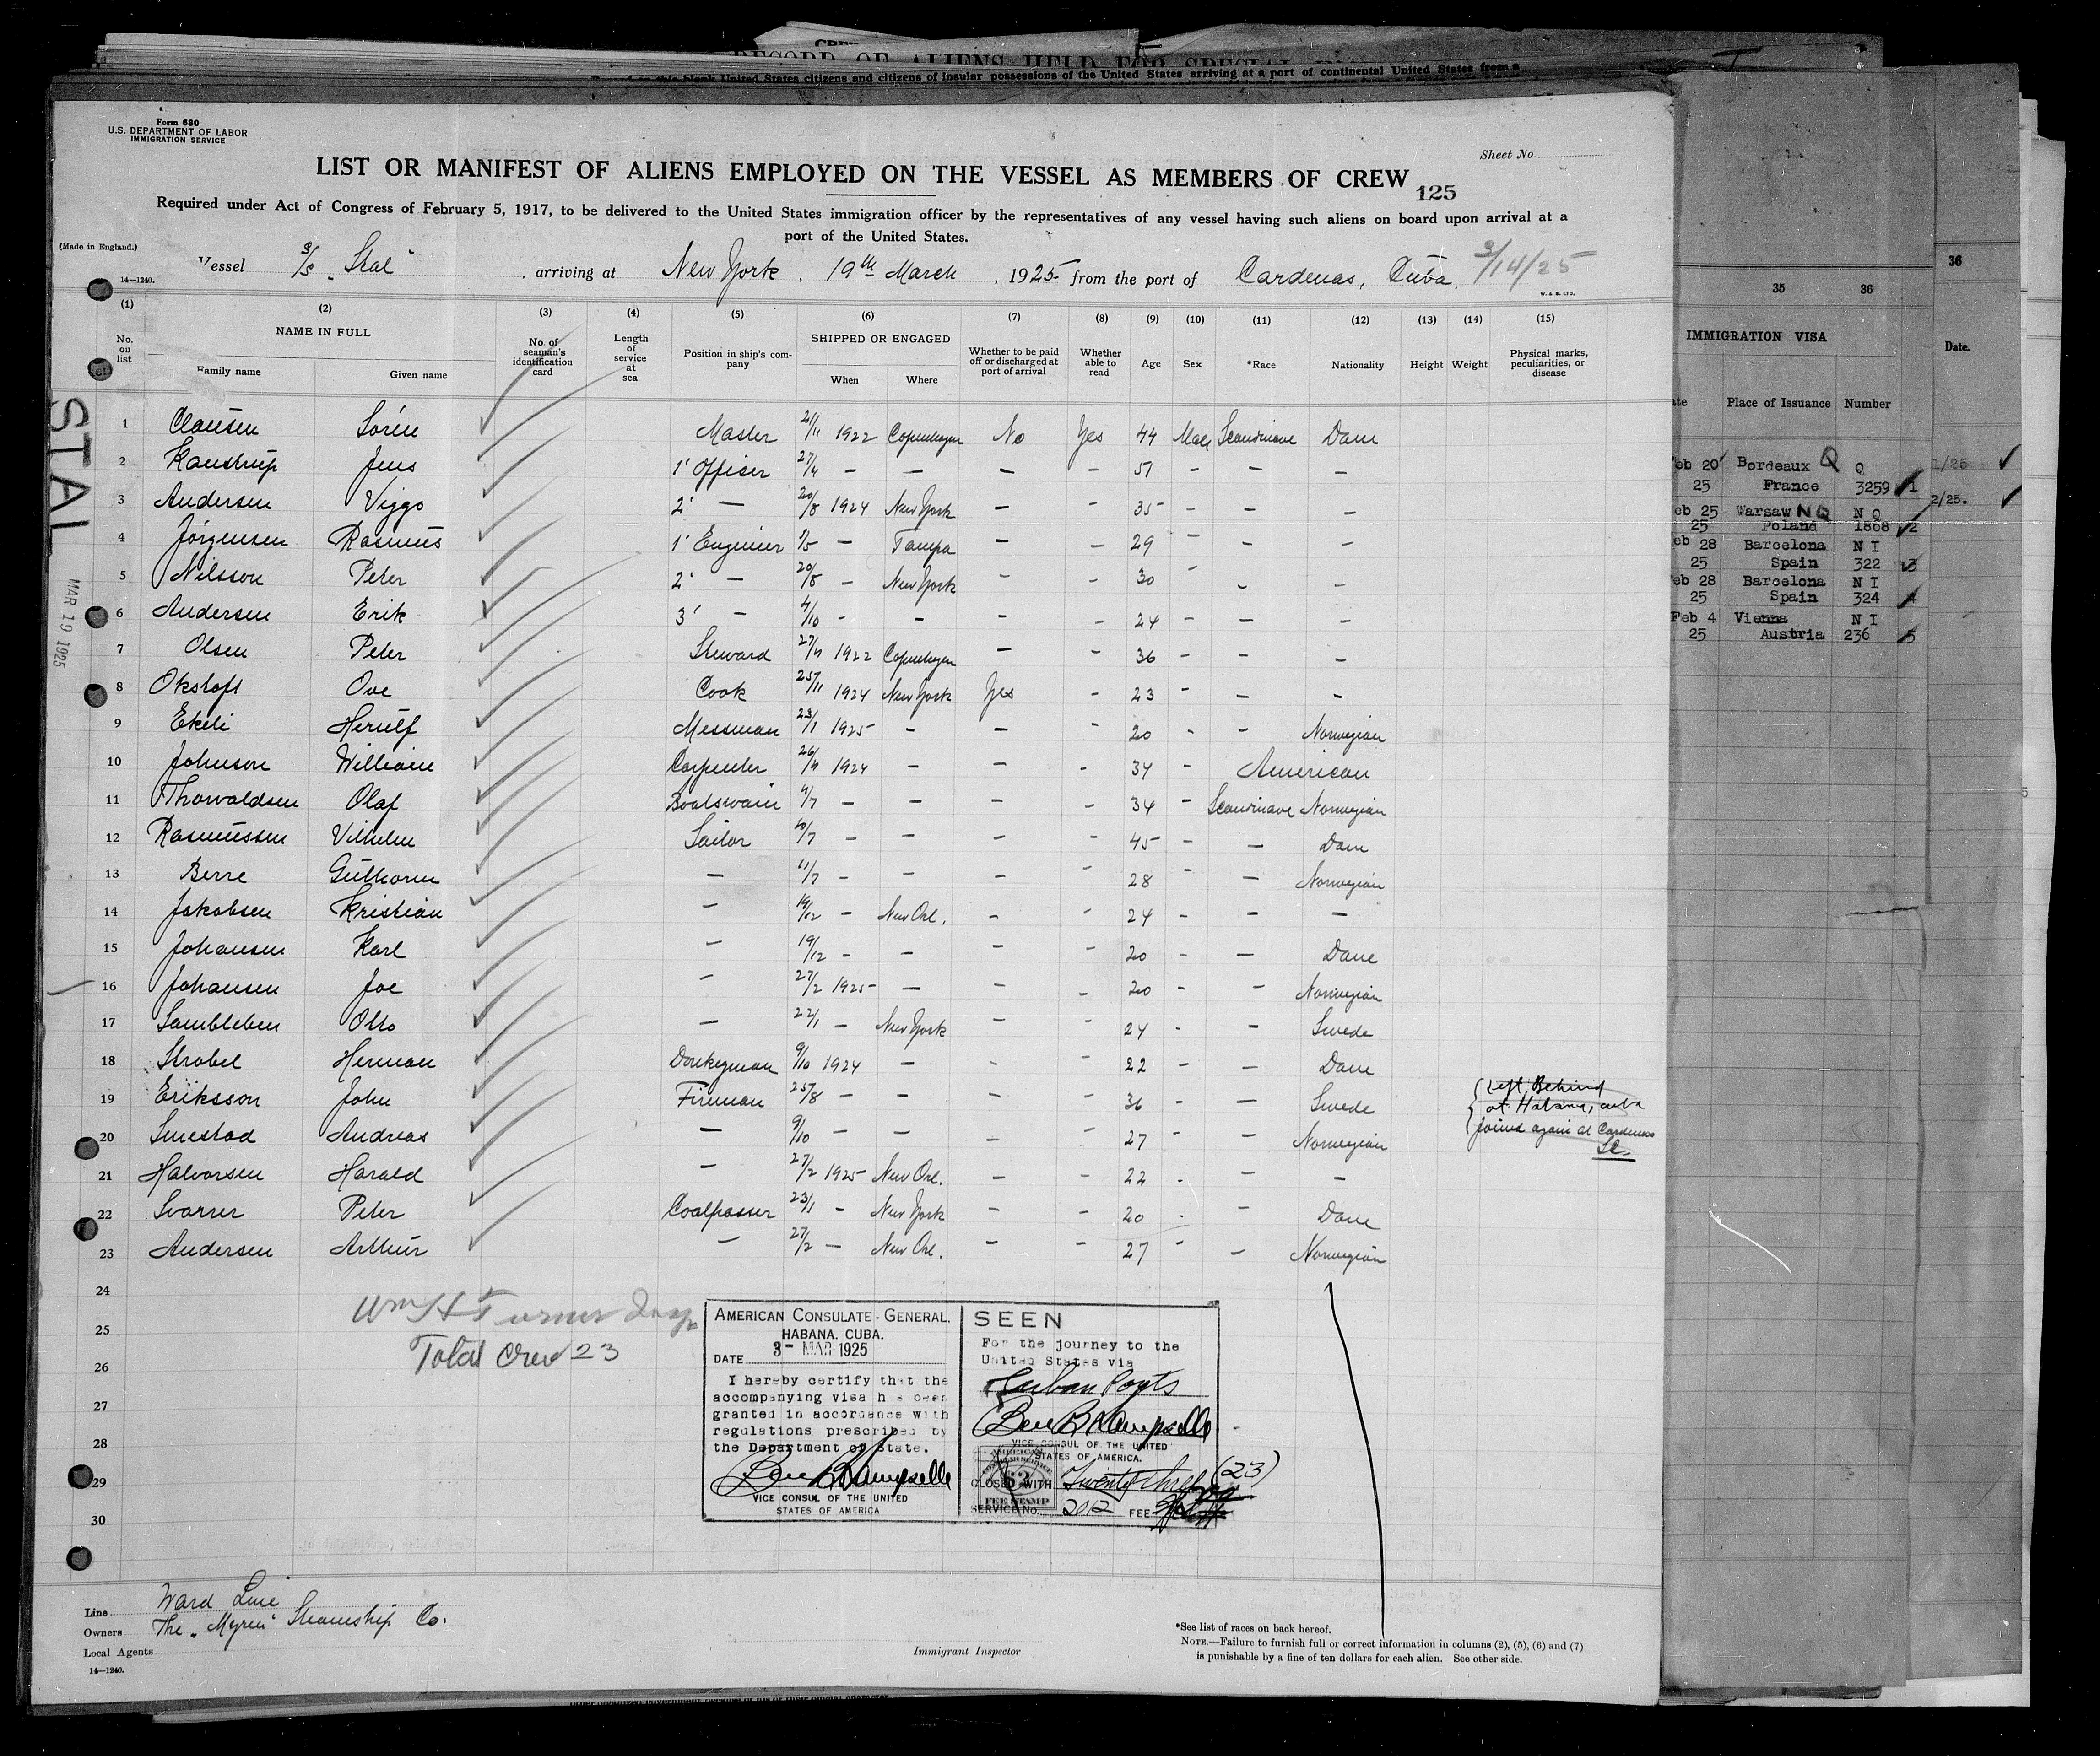 RECORD OF ALIENS HELD FOR SPECIAL
United States citizens and citizens of insular possessions of the United States arriving at a port of continental United States from a
Form 680
U.S. DEPARTMENT OF LABOR
IMMIGRATION SERVICE
Sheet No
LIST OR MANIFEST OF ALIENS EMPLOYED ON THE VESSEL AS MEMBERS OF CREW
125
Required under Act of Congress of February 5, 1917, to be delivered to the United States immigration officer by the representatives of any vessel having such aliens on board upon arrival at a
port of the United States.
(Made in England.)
Vessel S/S "Stal" arriving at New York. 19th March, 1925 from the port of Cardenas, Cuba. 3/14/25
14—1240.
W. & S. LTD.
(1) (2) (3) (4) (5) (6) (7) (8) (9) (10) (11) (12) (13) (14) (15)
No. on list
NAME IN FULL
Family name Given name
No. of seaman's identification card
Length of service at sea
Position in ship's company
SHIPPED OR ENGAGED
When Where
Whether to be paid off or discharged at port of arrival
Whether able to read
Age Sex *Race Nationality Height Weight
Physical marks, peculiarities, or disease
STAL
MAR 19 1925
1 Clausen Sören Master 21/11 1922 Copenhagen No Yes 44 Male Scandinave Dane
2 Kaustrup Jens 1' Officer — — — - 51 - - -
3 Andersen Viggo 2' — 20/8 1924 New York — - 35 - - -
4 Jörgensen Rasmus 1' Engineer — Tampa — - 29 - - -
5 Nilsson Peter 2' — 20/8 — New York - - 30 - - -
6 Andersen Erik 3' — 4/10 - - - - 24 - - -
7 Olsen Peter Steward 1922 Copenhagen — - 36 - - -
8 Okstoft Ove Cook 25/11 1924 New York Yes - 23 - - -
9 Ekeli Herulf Messman 23/1 1925 - — - 20 - - Norwegian
10 Johnson William Carpenter 1924 — — - 34 - American
11 Thorvaldsen Olaf Boatswain 4/7 — — — - 34 - Scandinave Norwegian
12 Rasmussen Vilhelm Sailor 10/7 — — — - 45 - — Dane
13 Berre Guthorm — 11/7 - - - - 28 - — Norwegian
14 Jakobsen Kristian — 19/12 — New Orl. - - 24 - — —
15 Johansen Karl — 19/12 - — - - 20 - — Dane
16 Johansen Joe — 27/2 1925 — - - 20 - — Norwegian
17 Sambleben Otto — 22/1 — New York - - 24 - — Swede
18 Strobel Herman Donkeyman 9/10 1924 — - - 22 - — Dane
19 Eriksson John Fireman 25/8 — — - - 36 - — Swede
20 Smestad Andreas — 9/10 — — — - 27 - — Norwegian
21 Halvorsen Harald — 27/2 1925 New Orl. — - 22 - — —
22 Svarrer Peter Coalpasser 23/1 - New York - - 20 - - Dane
23 Andersen Arthur — 27/2 — New Orl. - - 27 - — Norwegian
Left Behind
at Habana, cuba
joined again at Cardenas
24
25
26
27
28
29
30
Wm H Turner
Total Crew 23
AMERICAN CONSULATE-GENERAL.
HABANA. CUBA.
DATE 3- MAR 1925
I hereby certify that the
accompanying visa has been
granted in accordance with
regulations prescribed by
the Department of State.
VICE CONSUL OF THE UNITED
STATES OF AMERICA
SEEN
For the journey to the
United States via
Cuban Ports
VICE CONSUL OF THE UNITED
STATES OF AMERICA.
AMERICAN
$2
FEE STAMP
CLOSED WITH Twenty three (23)
SERVICE NO. 2012 FEE
Line Ward Line
Owners The "Myren" Steamship Co.
Local Agents
14—1240.
Immigrant Inspector
*See list of races on back hereof.
NOTE.—Failure to furnish full or correct information in columns (2), (5), (6) and (7)
is punishable by a fine of ten dollars for each alien. See other side.
35 36
36
IMMIGRATION VISA
Place of Issuance Number
Date.
Feb 20 Bordeaux Q Q 1/25
25 France 3259 1
Feb 25 Warsaw NQ N Q 2/25.
25 Poland 1868 2
Feb 28 Barcelona N I
25 Spain 322 3
Feb 28 Barcelona N I
25 Spain 324 4
Feb 4 Vienna N I
25 Austria 236 5